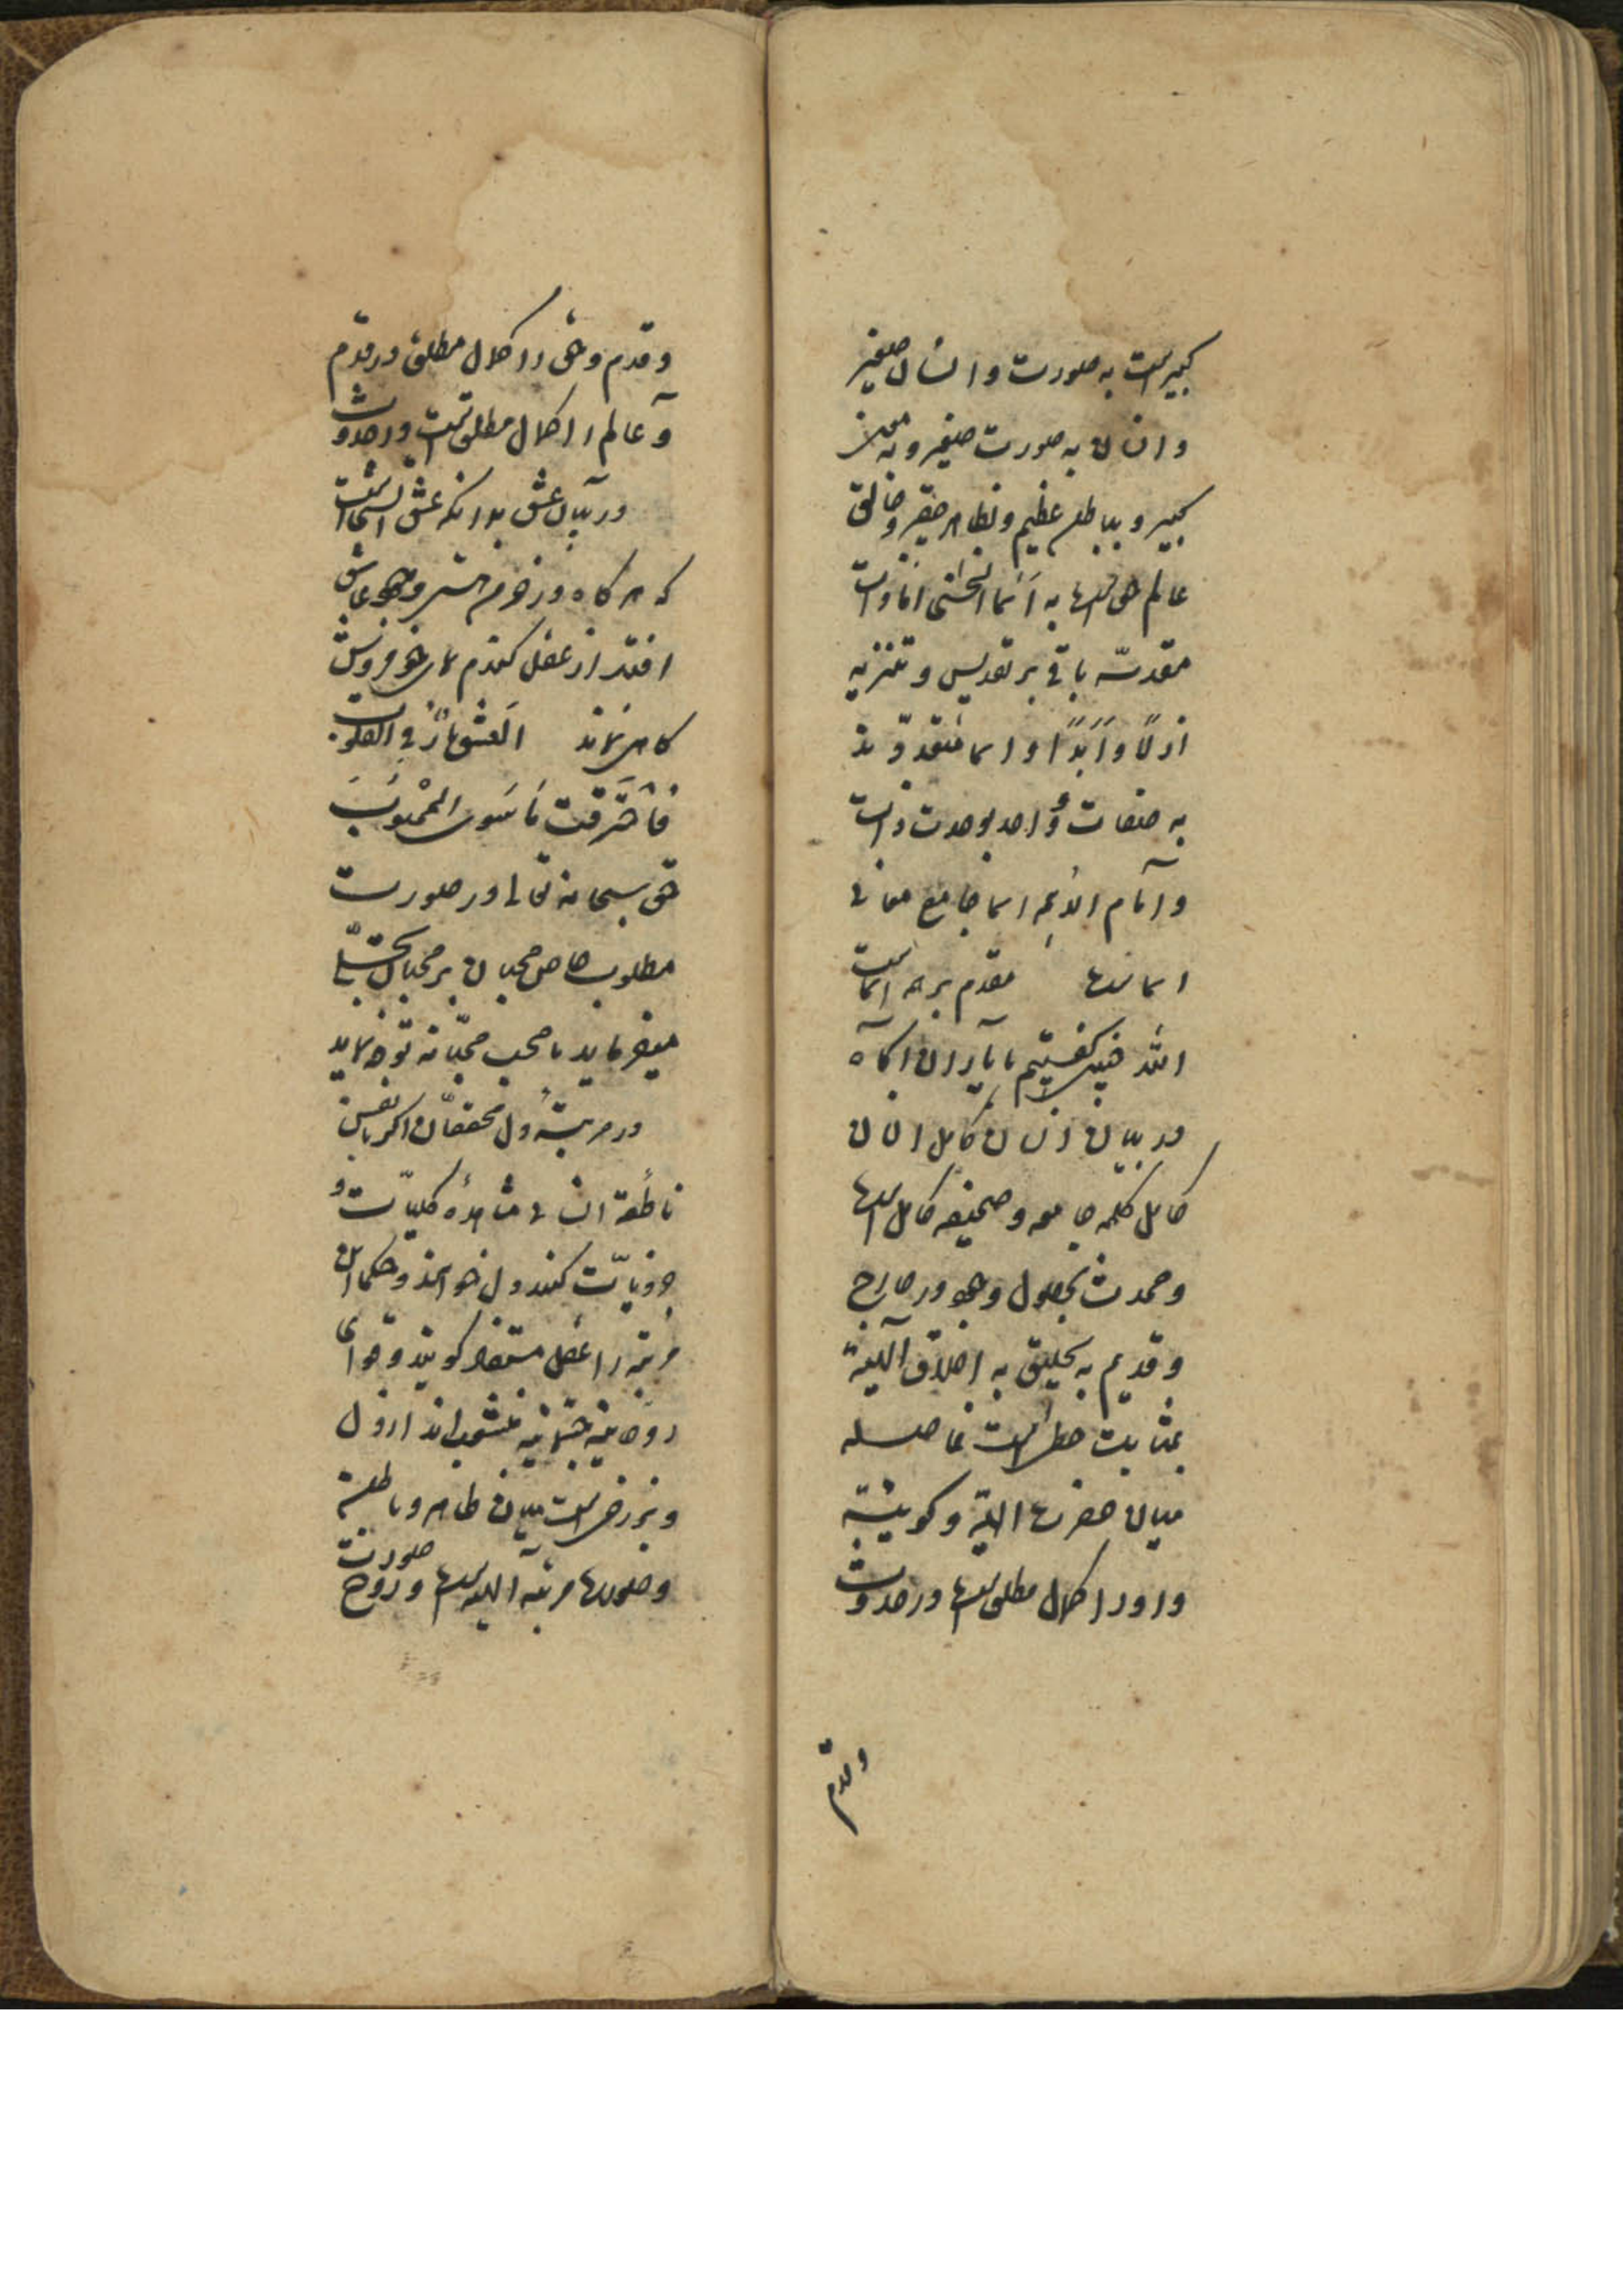 کبیر است به صورت و انسان صغیر
و انسان به صورت صغیر و به معنی
کبیر و بباطن عظیم و بظاهر حقیر و خالق
عالم حق است به اسما الحسنی اما ذات
مقدسه باقی بر تقدیس و تنزیه
ازلًا و اَبَدًا و اسما متعدّدند
به صفات و واحد بوحدت ذات
و امام الائمه اسما جامع معانی
اسما است مقدم بر همه اسماست
الله گفتیم با یاران آگاه
در بیان انسان کامل انسان
کامل کلمه جامعه و صحیفه کامل است
و حدوث بحصول وجود در خارج
و قدیم به تخلیق به اخلاق آلهیّة
بمثابت خط است فاصله
میان حضرت الهیّة و کونیّة
و او را کمال مطلق است در حدوث
و قدم
و قدم و حق را کمال مطلق در قدم
و عالم را کمال مطلق است در حدوث
در بیان عشق بدانکه عشق آتشی است
که هر گاه در خرمن هستی وجود عاشق
افتد از عقل گندم نمای جو فروش
کاهی نماند اَلعشق نارٌ فی القلوب
فَاَحْتَرَقَت مَا سَوی المحْبُوبَ
حق سبحانه تعالی در صورت
مطلوب خاص محبان بر محبان تجلّی
میفرماید با محب محبّانه توجه نماید
در مرتبهٔ دل محققان اکر نفس
ناطقهٔ انسانی مشاهدهٔ کلیّات و
جزئیّات کند دل خوانند و حکما این
مرتبه را عقل مستفاد گویند و قوای
روحانیه جسمانیه منشعب اند از دل
و برزخی است میان ظاهر و باطن
و صورت مرتبه آلهیه است و روح صورت